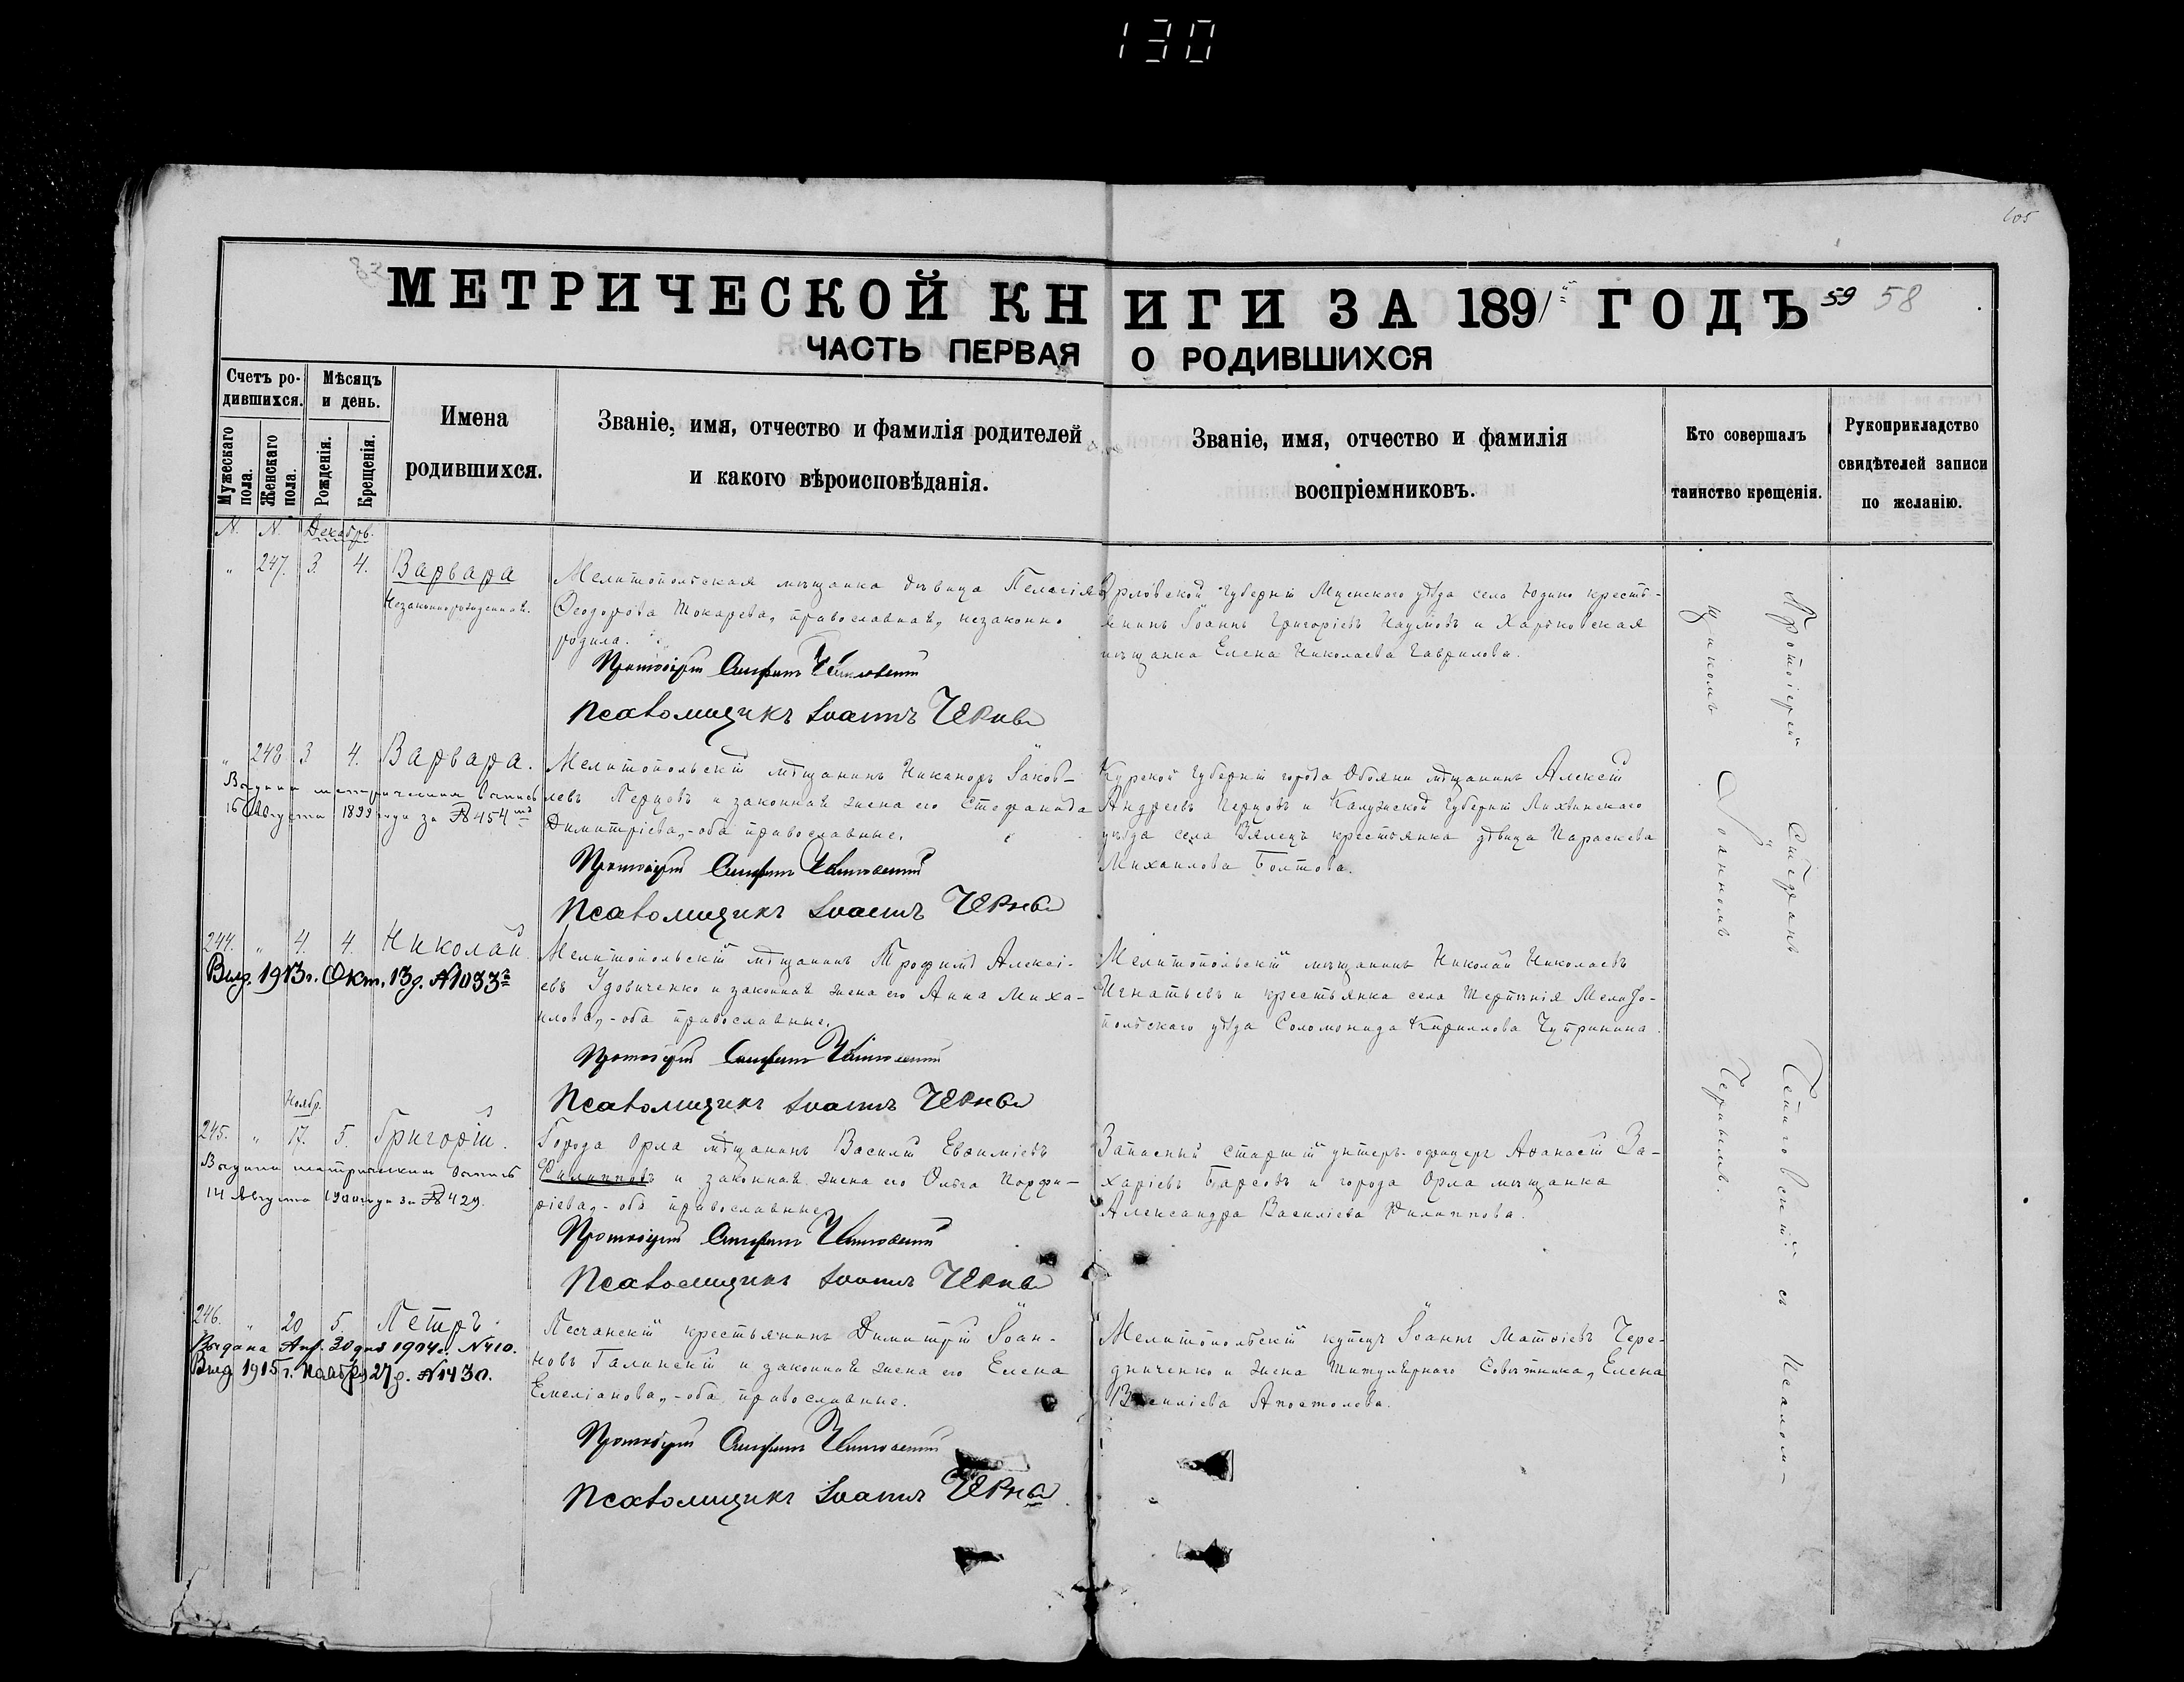 130
105
82
МЕТРИЧЕСКОЙ КНИГИ ЗА 1891й ГОДЪ 59 58
ЧАСТЬ ПЕРВАЯ О РОДИВШИХСЯ
Счетъ родившихся.
Мужескаго пола.
Женскаго пола.
Мѣсяцъ и день.
Рожденія.
Крещенія.
Имена
родившихся.
Званіе, имя, отчество и фамилія родителей
и какого вѣроисповѣданія.
Званіе, имя, отчество и фамилія
воспріемниковъ.
Кто совершалъ
таинство крещенія.
Рукоприкладство
свидѣтелей записи
по желанію.
N. N. Декабрь.
„ 247. 3. 4. Варвара
Незаконнорожденная.
Мелитопольская мѣщанка дѣвица Пелагія
Ѳеодорова Токарева, православная, незаконно
родила.
Протоіерей Стефанъ
Псаломщикъ Іоаннъ Чернев
Орловской губерніи Мценскаго уѣзда села Юдино кресть-
янинъ Іоаннъ Григоріевъ Наумовъ и Харьковская
мѣщанка Елена Николаева Гаврилова.
„ 248 3 4. Варвара.
Выдана метрическая выпись
16 Августа 1899 года за № 454
Мелитопольскій мѣщанинъ Никаноръ Іаков-
левъ Перцовъ и законная жена его Стефанида
Димитріева,-оба православные.
Протоіерей Стефанъ
Псаломщикъ Іоаннъ Чернев
Курской Губерніи города Обояни мѣщанинъ Алексій
Андреевъ Перцовъ и Калужской Губерніи Лихвинскаго
уѣзда села Вялецъ крестьянка дѣвица Параскева
Михаилова Болтова.
244. „ 4. 4. Николай.
Выд. 1913г. Окт. 13д. №1033
Мелитопольскій мѣщанинъ Трофимъ Алексі-
евъ Удовиченко и законная жена его Анна Миха-
илова,-оба православные.
Протоіерей Стефанъ
Псаломщикъ Іоаннъ Чернев
Мелитопольскій мѣщанинъ Николай Николаевъ
Игнатьевъ и крестьянка села Терпѣнія Мелито-
польскаго уѣзда Соломонида Кириллова Чупринина.
Ноябр.
245. „ 17. 5. Григорій.
Выдана метрическая выпись
14 Августа года за № 429.
Города Орла мѣщанинъ Василій Евѳиміевъ
Филипповъ и законная жена его Ольга Порфи-
ріева,-оба православные.
Протоіерей Стефанъ
Псаломщикъ Іоаннъ Чернев
Запасный старшій унтеръ-офицеръ Аѳанасій За-
харіевъ Барсовъ и города Орла мѣщанка
Александра Василіева Филиппова.
246. „ 20 5. Петръ.
Выдана Апр. 30 дня 1904г. №410.
Выд. 1915г. Ноября 27д. №1430.
Песчанскій крестьянинъ Димитрій Іоан-
новъ Галинскій и законная жена его Елена
Емеліанова,-оба православные.
Протоіерей Стефанъ
Псаломщикъ Іоаннъ Чернев
Мелитопольскій купецъ Іоаннъ Матѳіевъ Чере-
дниченко и жена Титулярнаго Совѣтника, Елена
Василіева Апостолова.
Протоіерей Стефанъ съ Псалом-
щикомъ Іоанномъ